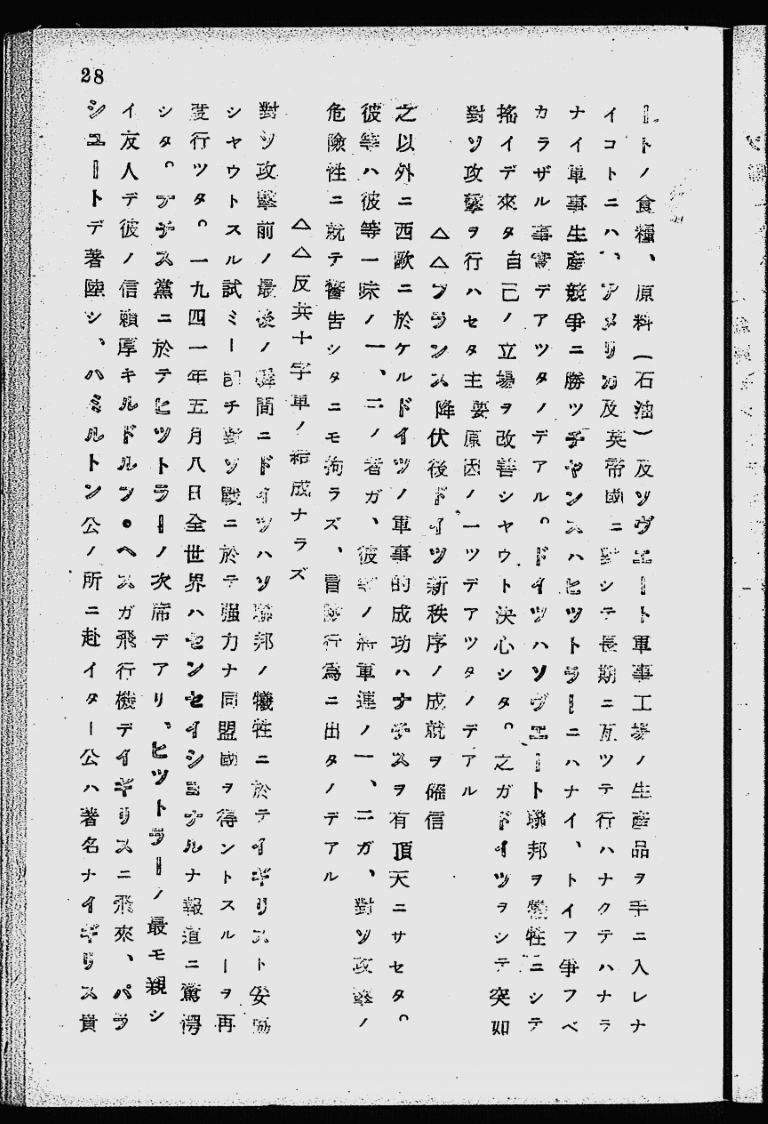 28
ートノ食糧、原料(石油)及ソヴエート軍事工場ノ生産品ヲ手ニ入レナ
イコトニハ、アメリカ及英帝國ニ對シテ長期ニ亙ツテ行ハナクテハナラ
ナイ軍事生産競爭ニ勝ツチヤンスハヒツトラーニハナイ、トイフ爭フベ
カラザル事實デアツタノデアル。ドイツハソヴエート聯邦ヲ犧牲ニシテ
搖イデ來タ自己ノ立場ヲ改善シヤウト決心シタ。之ガドイツヲシテ突如
對ソ攻擊ヲ行ハセタ主要原因ノ一ツデアツタノデアル
△△フランス降伏後ドイツ新秩序ノ成就ヲ確信
之以外ニ西歐ニ於ケルドイツノ軍事的成功ハナチスヲ有頂天ニサセタ。
彼等ハ彼等一味ノ一、二ノ者ガ、彼等ノ將軍連ノ一、二ガ、對ソ攻擊ノ
危險性ニ就テ警告シタニモ拘ラズ、冒險行爲ニ出タノデアル
△△反共十字軍ノ結成ナラズ
對ソ攻擊前ノ最後ノ瞬間ニドイツハソ聯邦ノ犧牲ニ於テイギリスト妥協
シヤウトスル試ミー卽チ對ソ戰ニ於テ强力ナ同盟國ヲ得ントスルーヲ再
度行ツタ。一九四一年五月八日全世界ハセンセイシヨナルナ報道ニ驚愕
シタ。ナチス黨ニ於テヒツトラーノ次席デアリ、ヒツトラーノ最モ親シ
イ友人デ彼ノ信賴厚キルドルフ・ヘスガ飛行機デイギリスニ飛來、パラ
シユートデ著陸シ、ハミルトン公ノ所ニ赴イターー公ハ著名ナイギリス貴